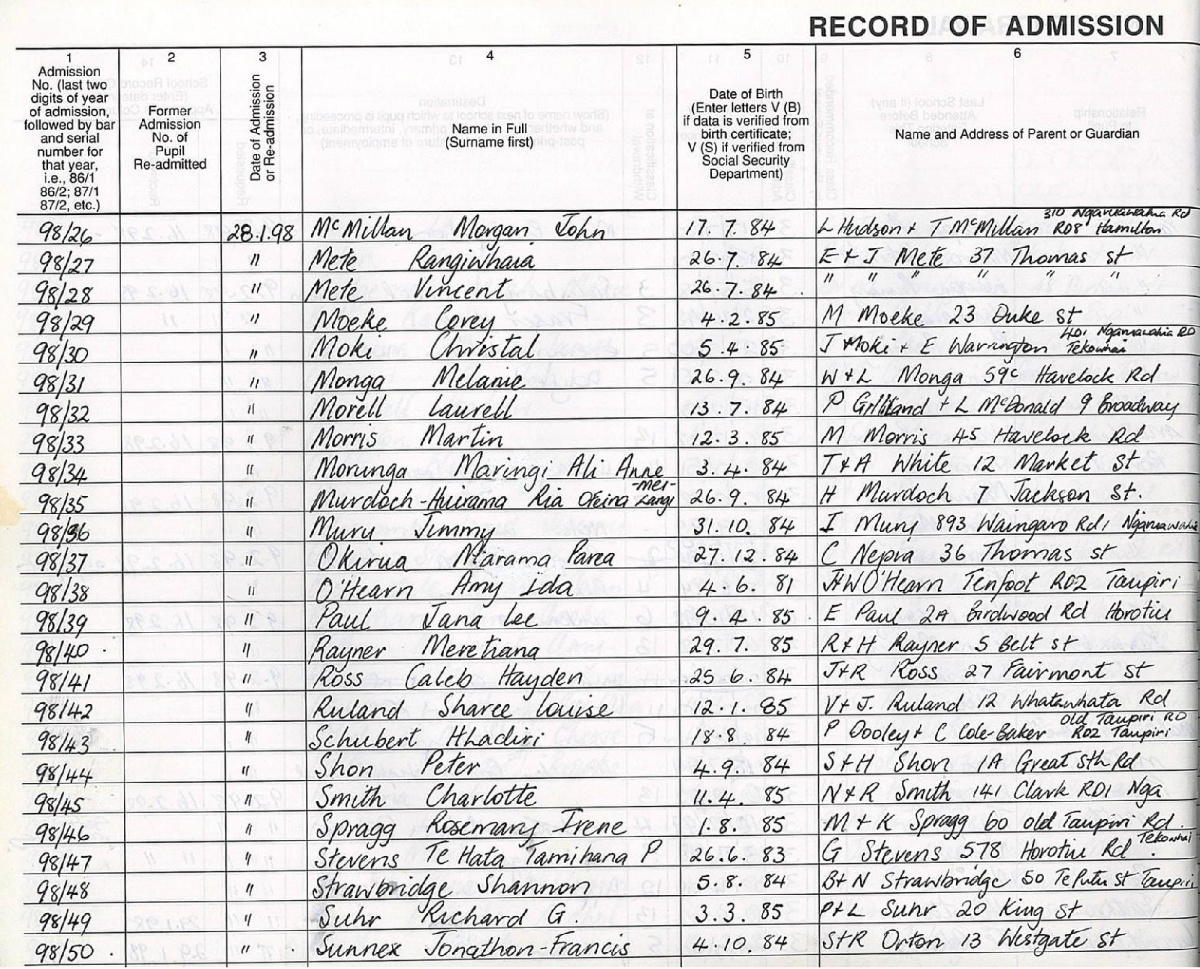 RECORD OF ADMISSION
1 2 3 4 5 6
Admission No. (last two digits of year of admission, followed by bar and serial number for that year, i.e., 86/1 86/2; 87/1 87/2, etc.)
Former Admission No. of Pupil Re-admitted
Date of Admission or Re-admission
Name in Full (Surname first)
Date of Birth (Enter letters V (B) if data is verified from birth certificate; V (S) if verified from Social Security Department)
Name and Address of Parent or Guardian
98/26 28.1.98 McMillan Morgan John 17.7.84 L Hudson + T McMillan 310 Ngaruawahia Rd RD8 Hamilton
98/27 " Mete Rangiwhaia 26.7.84 E + J Mete 37 Thomas st
98/28 " Mete Vincent 26.7.84 " " " " " "
98/29 " Moeke Corey 4.2.85 M Moeke 23 Duke st
98/30 " Moki Christal 5.4.85 J Moki + E Warrington 401 Ngaruawahia RD Tekowhai
98/31 " Monga Melanie 26.9.84 W + L Monga 59c Havelock Rd
98/32 " Morell Laurell 13.7.84 P + L McDonald 9 Broadway
98/33 " Morris Martin 12.3.85 M Morris 45 Havelock Rd
98/34 " Morunga Maringi Ali Anne 3.4.84 T + A White 12 Market St
98/35 " Murdoch-Huirama Ria -Mei- 26.9.84 H Murdoch 7 Jackson st.
98/36 " Muru Jimmy 31.10.84 I Muru 893 Waingaro Rd1 Ngaruawahia
98/37 " Okirua Marama Parea 27.12.84 C Nepia 36 Thomas st
98/38 " O'Hearn Amy Ida 4.6.81 J+W O'Hearn Tenfoot RD2 Taupiri
98/39 " Paul Jana Lee 9.4.85 E Paul 2A Birdwood Rd Horotiu
98/40 " Rayner Meretiana 29.7.85 R + H Rayner 5 Belt st
98/41 " Ross Caleb Hayden 25.6.84 J+R Ross 27 Fairmont st
98/42 " Ruland Sharee Louise 12.1.85 V + J. Ruland 12 Whatawhata Rd
98/43 " Schubert 18.8.84 P Dooley + C Cole-Baker old Taupiri RD RD2 Taupiri
98/44 " Shon Peter 4.9.84 S + H Shon 1A Great Sth Rd
98/45 " Smith Charlotte 11.4.85 N + R Smith 141 Clark RD1 Nga
98/46 " Spragg Rosemary Irene 1.8.85 M + K Spragg 60 old Taupiri Rd.
98/47 " Stevens Te Hata Tamihana P 26.6.83 G Stevens 578 Horotiu Rd Tekowhai
98/48 " Strawbridge Shannon 5.8.84 B + N Strawbridge 50 Te Putu St Taupiri
98/49 " Suhr Richard G. 3.3.85 P + L Suhr 20 King st
98/50 " Sunnex Jonathon-Francis 4.10.84 S + R Orton 13 Westgate st